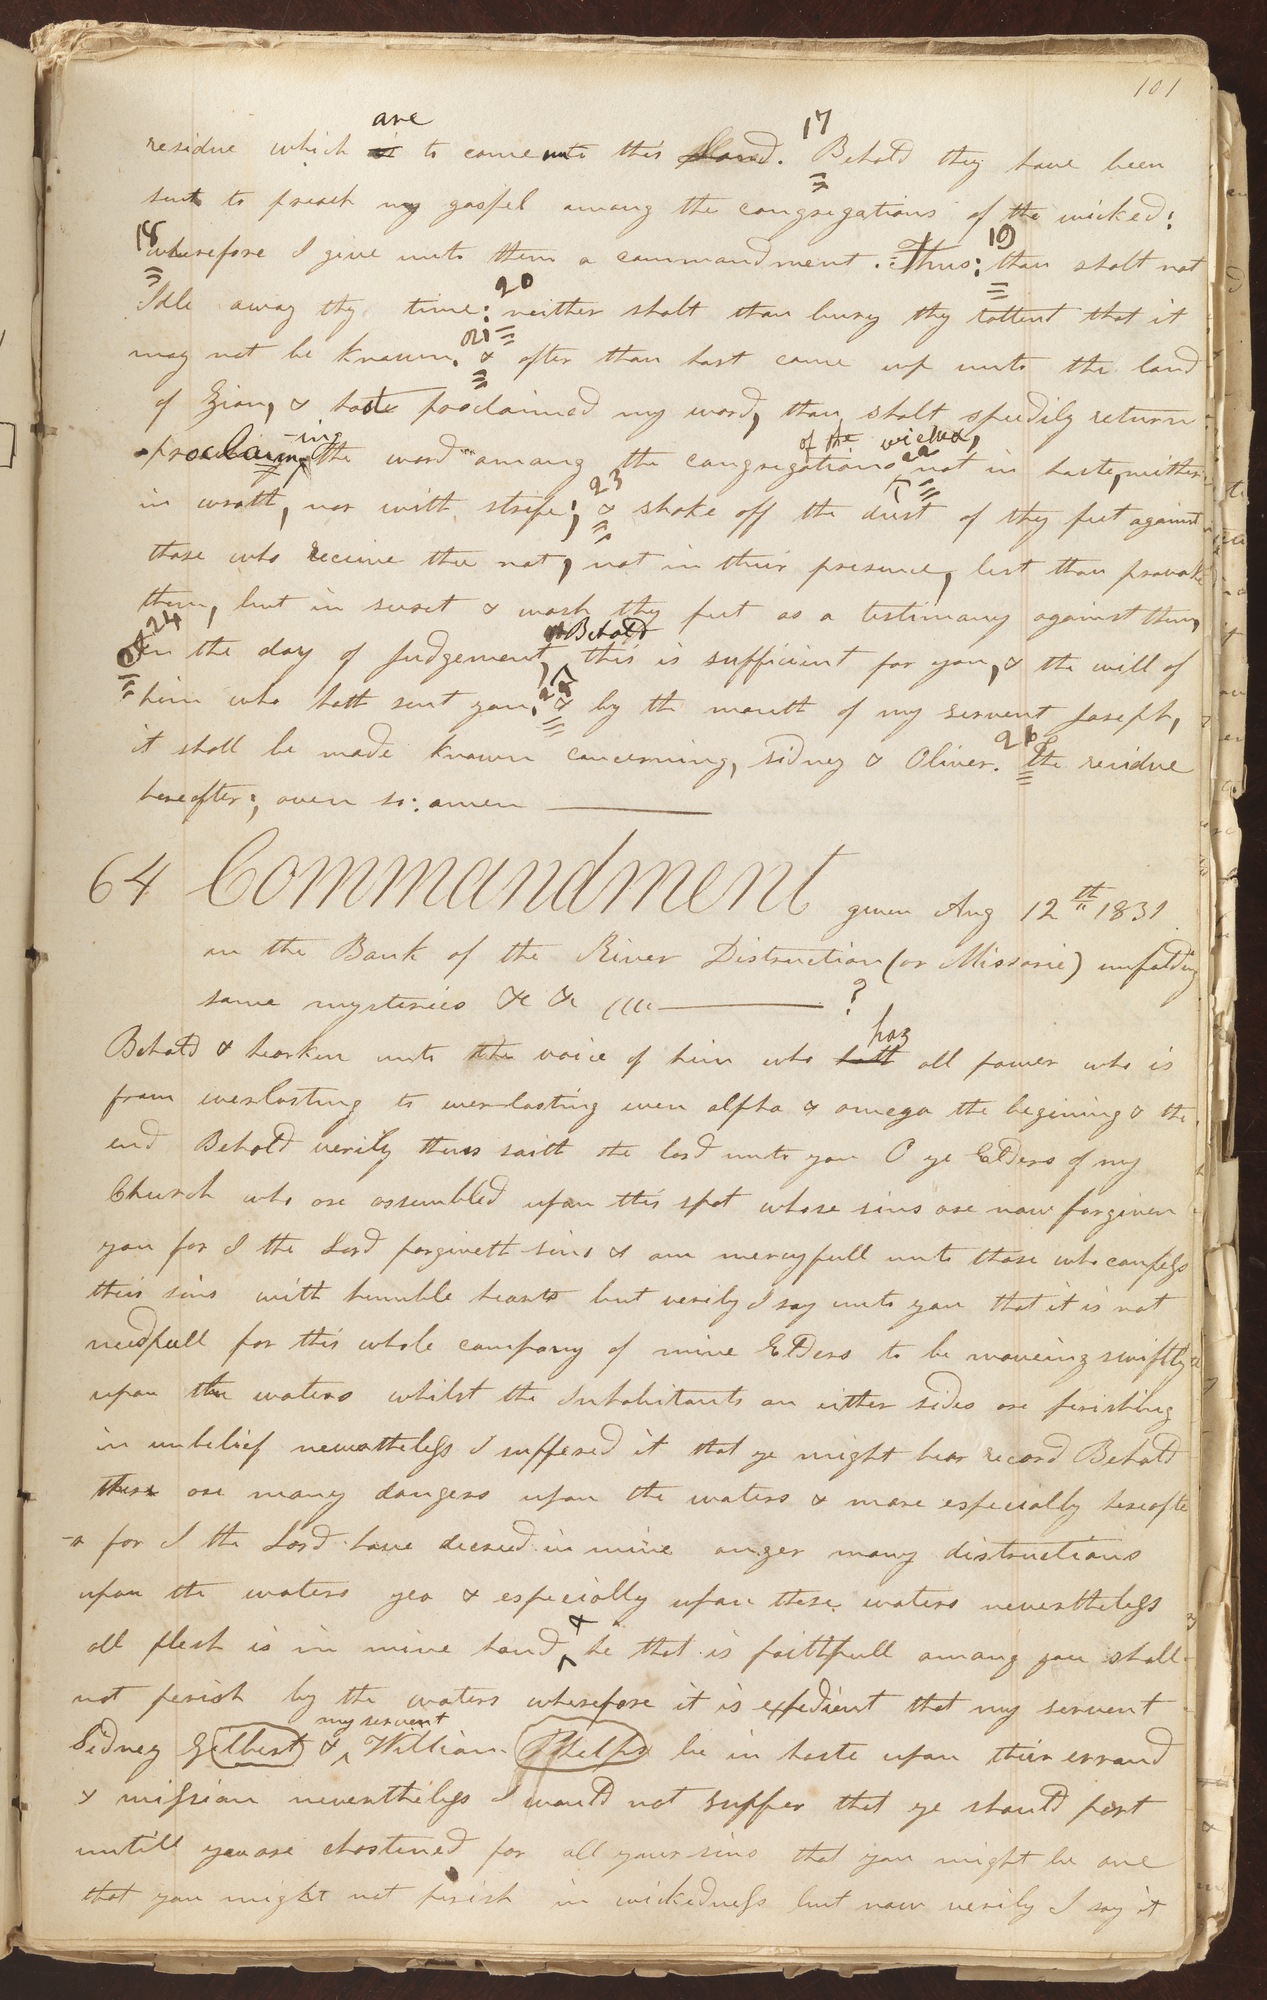 101
residue which is are to come unto this Land. 17 Behold they have been
sent to preach my gospel among the congregations of the wicked:
18 wherefore I give unto them a commandment. Thus: 19 thou shalt not
Idle away thy time: 20 neither shalt thou bury thy tallent that it
may not be known. 21 & after thou hast come up unto the land
of Zion, & hast proclaimed my word, thou shalt speedily return
proclaiming the word among the congregations of the wicked, 22 not in haste, neither
in wrath, nor with strife; 23 & shake off the dust of thy feet against
those who receive thee not, not in their presence, lest thou provoke
them, but in secret & wash thy feet as a testimony against them,
24 in the day of Judgement, Behold this is sufficient for you, & the will of
him who hath sent you. 25 & by the mouth of my servent Joseph,
it shall be made known concerning, Sidney & Oliver. 26 the residue
hereafter; even so: amen
64 Commandment given Aug 12th 1831
on the Bank of the River Distruction (or Missorie) unfolding
some mysteries &c &c ?
Behold & hearken unto the voice of him who hath has all power who is
from everlasting to everlasting even alpha & omega the begining & the
end Behold verily thus saith the lord unto you O ye Elders of my
Church who are assembled upon this spot whose sins are now forgiven
you for I the Lord forgiveth sins & am mercyfull unto those who confess
their sins with humble hearts but verily I say unto you that it is not
needfull for this whole company of mine Elders to be moveing swiftly
upon the waters whilst the Inhabitants on either sides are perishing
in unbelief nevertheless I suffered it that ye might bear record Behold
there are many dangers upon the waters & more especially hereafte
-r for I the Lord have decreed in mine anger many distructions
upon the waters yea & especially upon these waters nevertheless
all flesh is in mine hand & he that is faithfull among you shall
not perish by the waters wherefore it is expedient that my servent
Sidney Gilbert & my servent William Phelps be in haste upon their errand
& mission nevertheless I would not suffer that ye should part
untill you are chastened for all your sins that you might be one
that you might not perish in wickedness but now verily I say it